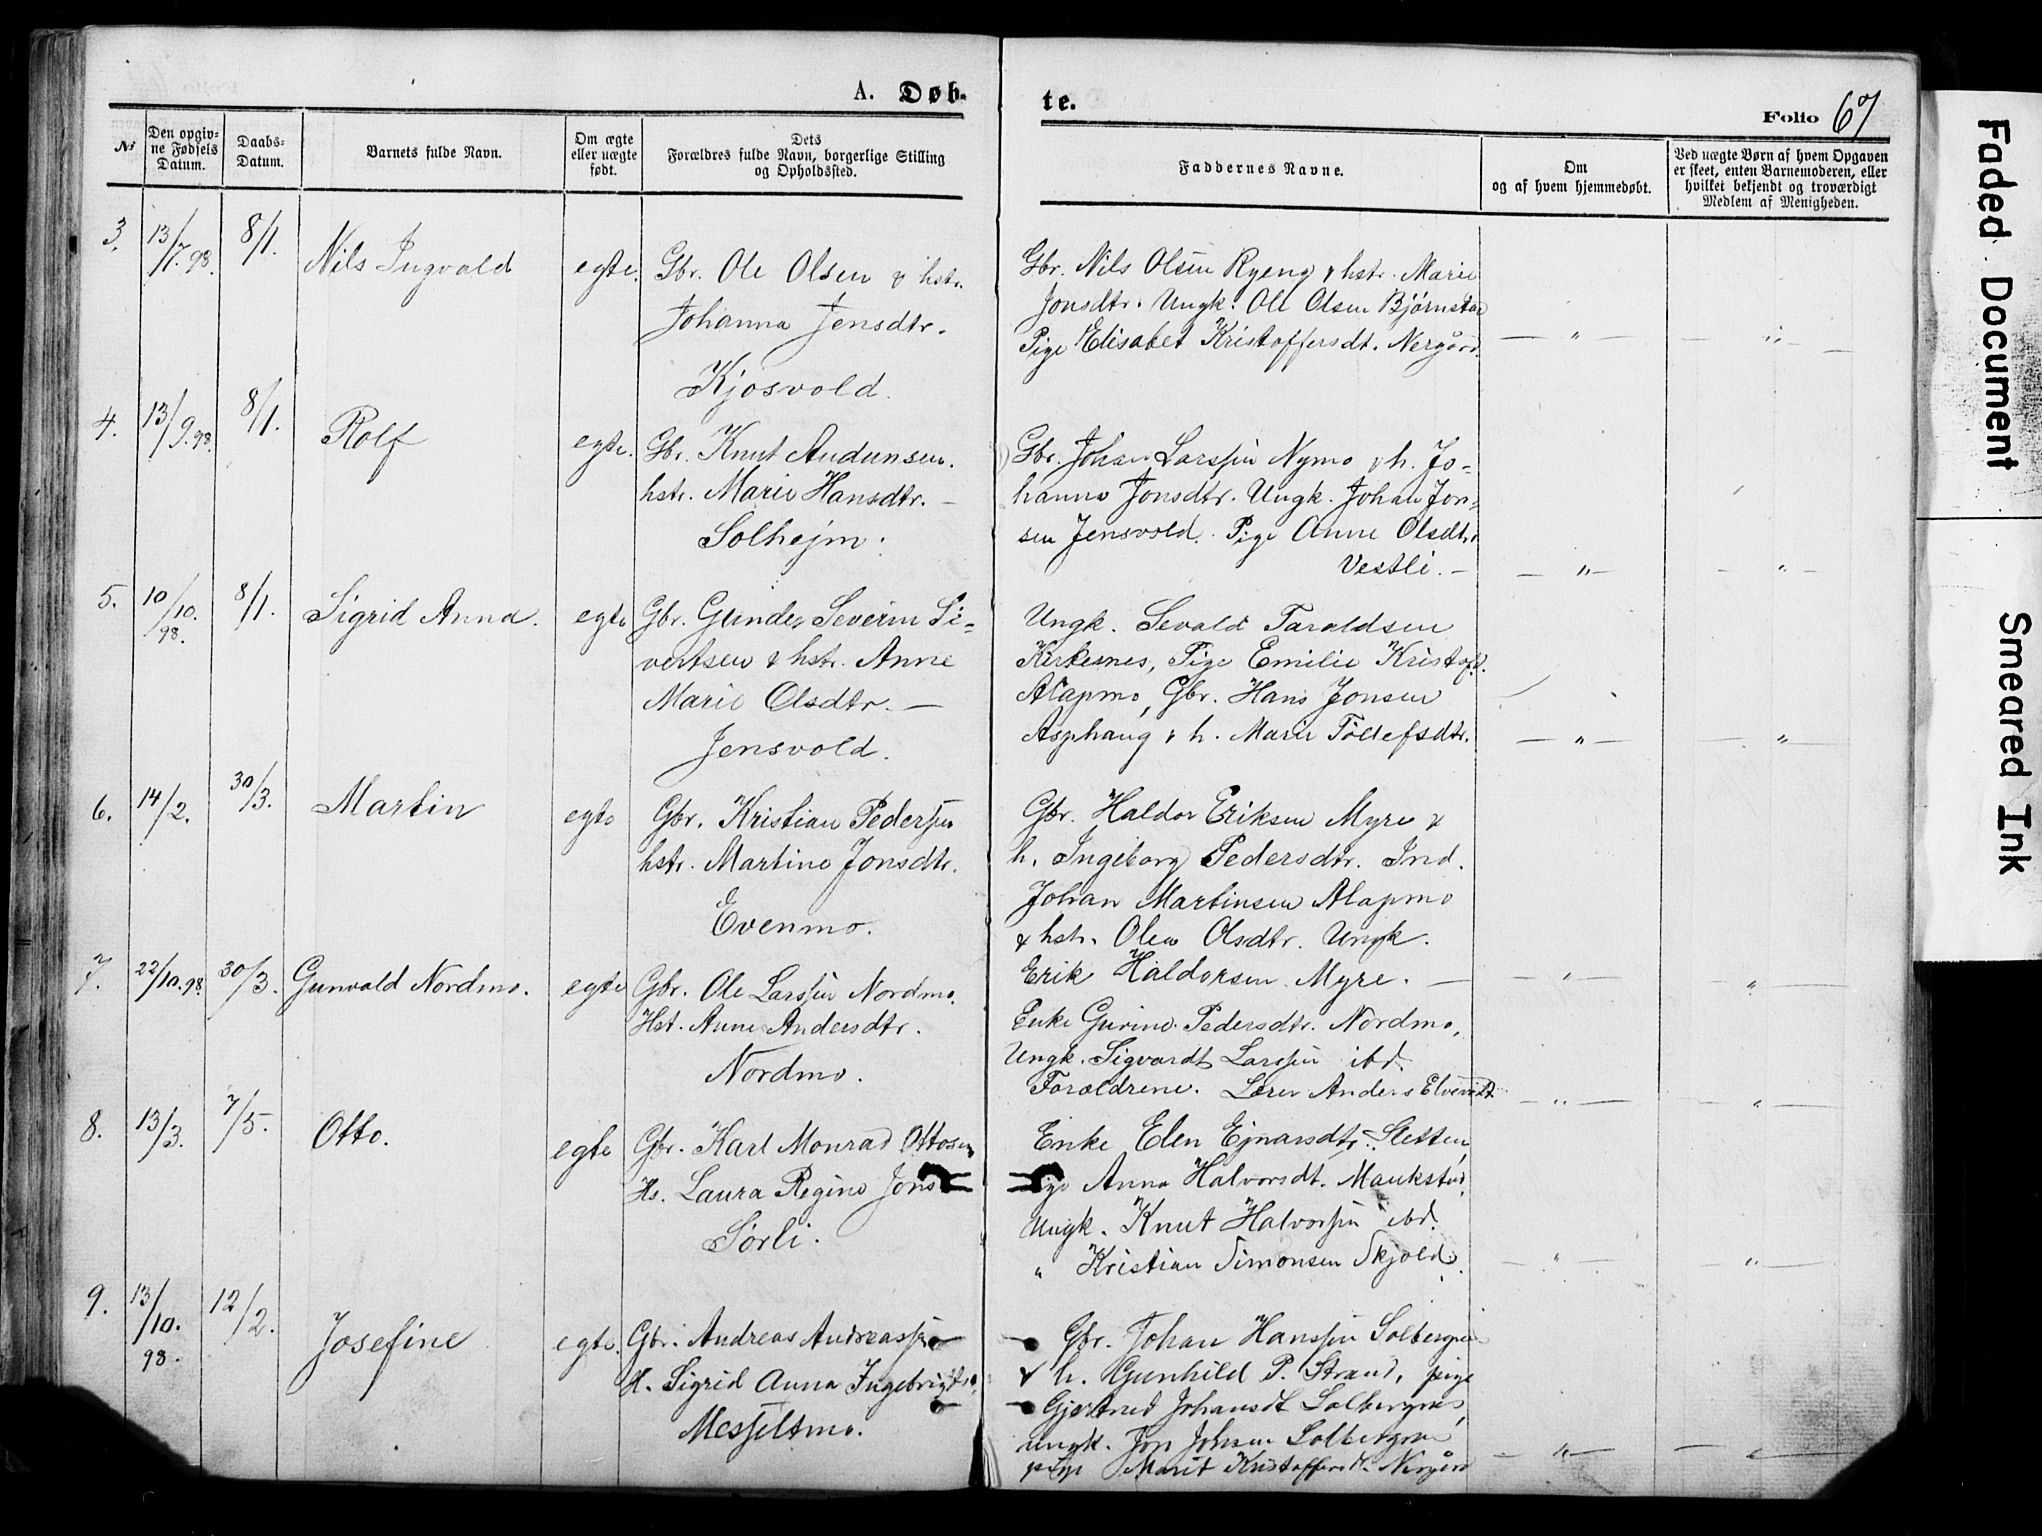 A. Døb-
te.
Folio 67
№
Den opgiv-
ne Fødsels
Datum.
Daabs-
Datum.
Barnets fulde Navn.
Om ægte
eller uægte
født.
Dets
Forældres fulde Navn, borgerlige Stilling
og Opholdssted.
Faddernes Navne.
Om
og af hvem hjemmedøbt.
Ved uægte Børn af hvem Opgaven
er skeet, enten Barnemoderen, eller
hvilket bekjendt og troværdigt
Medlem af Menigheden.
3. 13/7.98. 8/1. Nils Ingvald egte. Gbr. Ole Olsen & hstr.
Johanna Jensdtr.
Kjosvold.
Gbr. Nils Olsen Ryeng & hstr. Marie
Jonsdtr. Ungk. Ole Olsen Bjørnstad
Pige Elisabet Kristoffersdt. Nergård
— " — — " —
4. 13/9.98. 8/1. Rolf egte. Gbr. Knut Audunsen.
hstr. Marie Hansdtr. —
Solhejm.
Gbr. Johan Larssen Nymo & h. Jo-
hanna Jonsdtr. Ungk. Johan Jon-
sen Jensvold. Pige Anne Olsdtr.
Vestli. —
— " — — " —
5. 10/10.98. 8/1. Sigrid Anna. egte Gbr. Gunder Severin Si-
vertsen & hstr. Anne
Marie Olsdtr. —
Jensvold.
Ungk. Sevald Taraldsen
Kirkesnes, Pige Emilie Kristofd.
Alapmo, Gbr. Hans Jonsen
Asphaug & h. Marie Tollefsdtr.
— " — — " —
6. 14/2. 30/3. Martin egte Gbr. Kristian Pedersen
hstr. Martine Jonsdtr.
Evenmo.
Gbr. Haldor Eriksen Myre &
h. Ingeborg Pedersdtr. Ind.
Johan Martinsen Alapmo
& hstr. Olea Olsdtr. Ungk.
Erik Haldorsen Myre. —
— " — — " —
7. 22/10.98. 30/3. Gunvald Nordmo. egte Gbr. Ole Larssen Nordmo.
Hst. Anne Andersdtr.
Nordmo.
Enke Gurine Pedersdtr. Nordmo,
Ungk. Sigvardt Larssen ibd.
Forældrene. Lærer Anders Elvevold
— " — — " —
8. 13/3. 7/5. Otto. egte Gbr. Karl Monrad Ottosen
Hs. Laura Regine Jons
Sørli.
Enke Elen Ejnarsdtr. Sletten,
Pige Anna Halvorsdt. Maukstad,
Ungk. Knut Halvorsen ibd.
" Kristian Simonsen Skjold.
— " — — " —
9. 13/10.98. 12/2. Josefine egte. Gbr. Andreas Andreassen
H. Sigrid Anna Ingebrigtsd.
Messeltmo.
Gbr. Johan Hanssen Solbergnes
& h. Gunhild P. Strand, pige
Gjertrud Johansdt Solbergnes,
ungk. Jon Johnsen Solbergnes
pige Marit Kristoffersdt. Nergård
— " — — " —
Faded Document
Smeared Ink